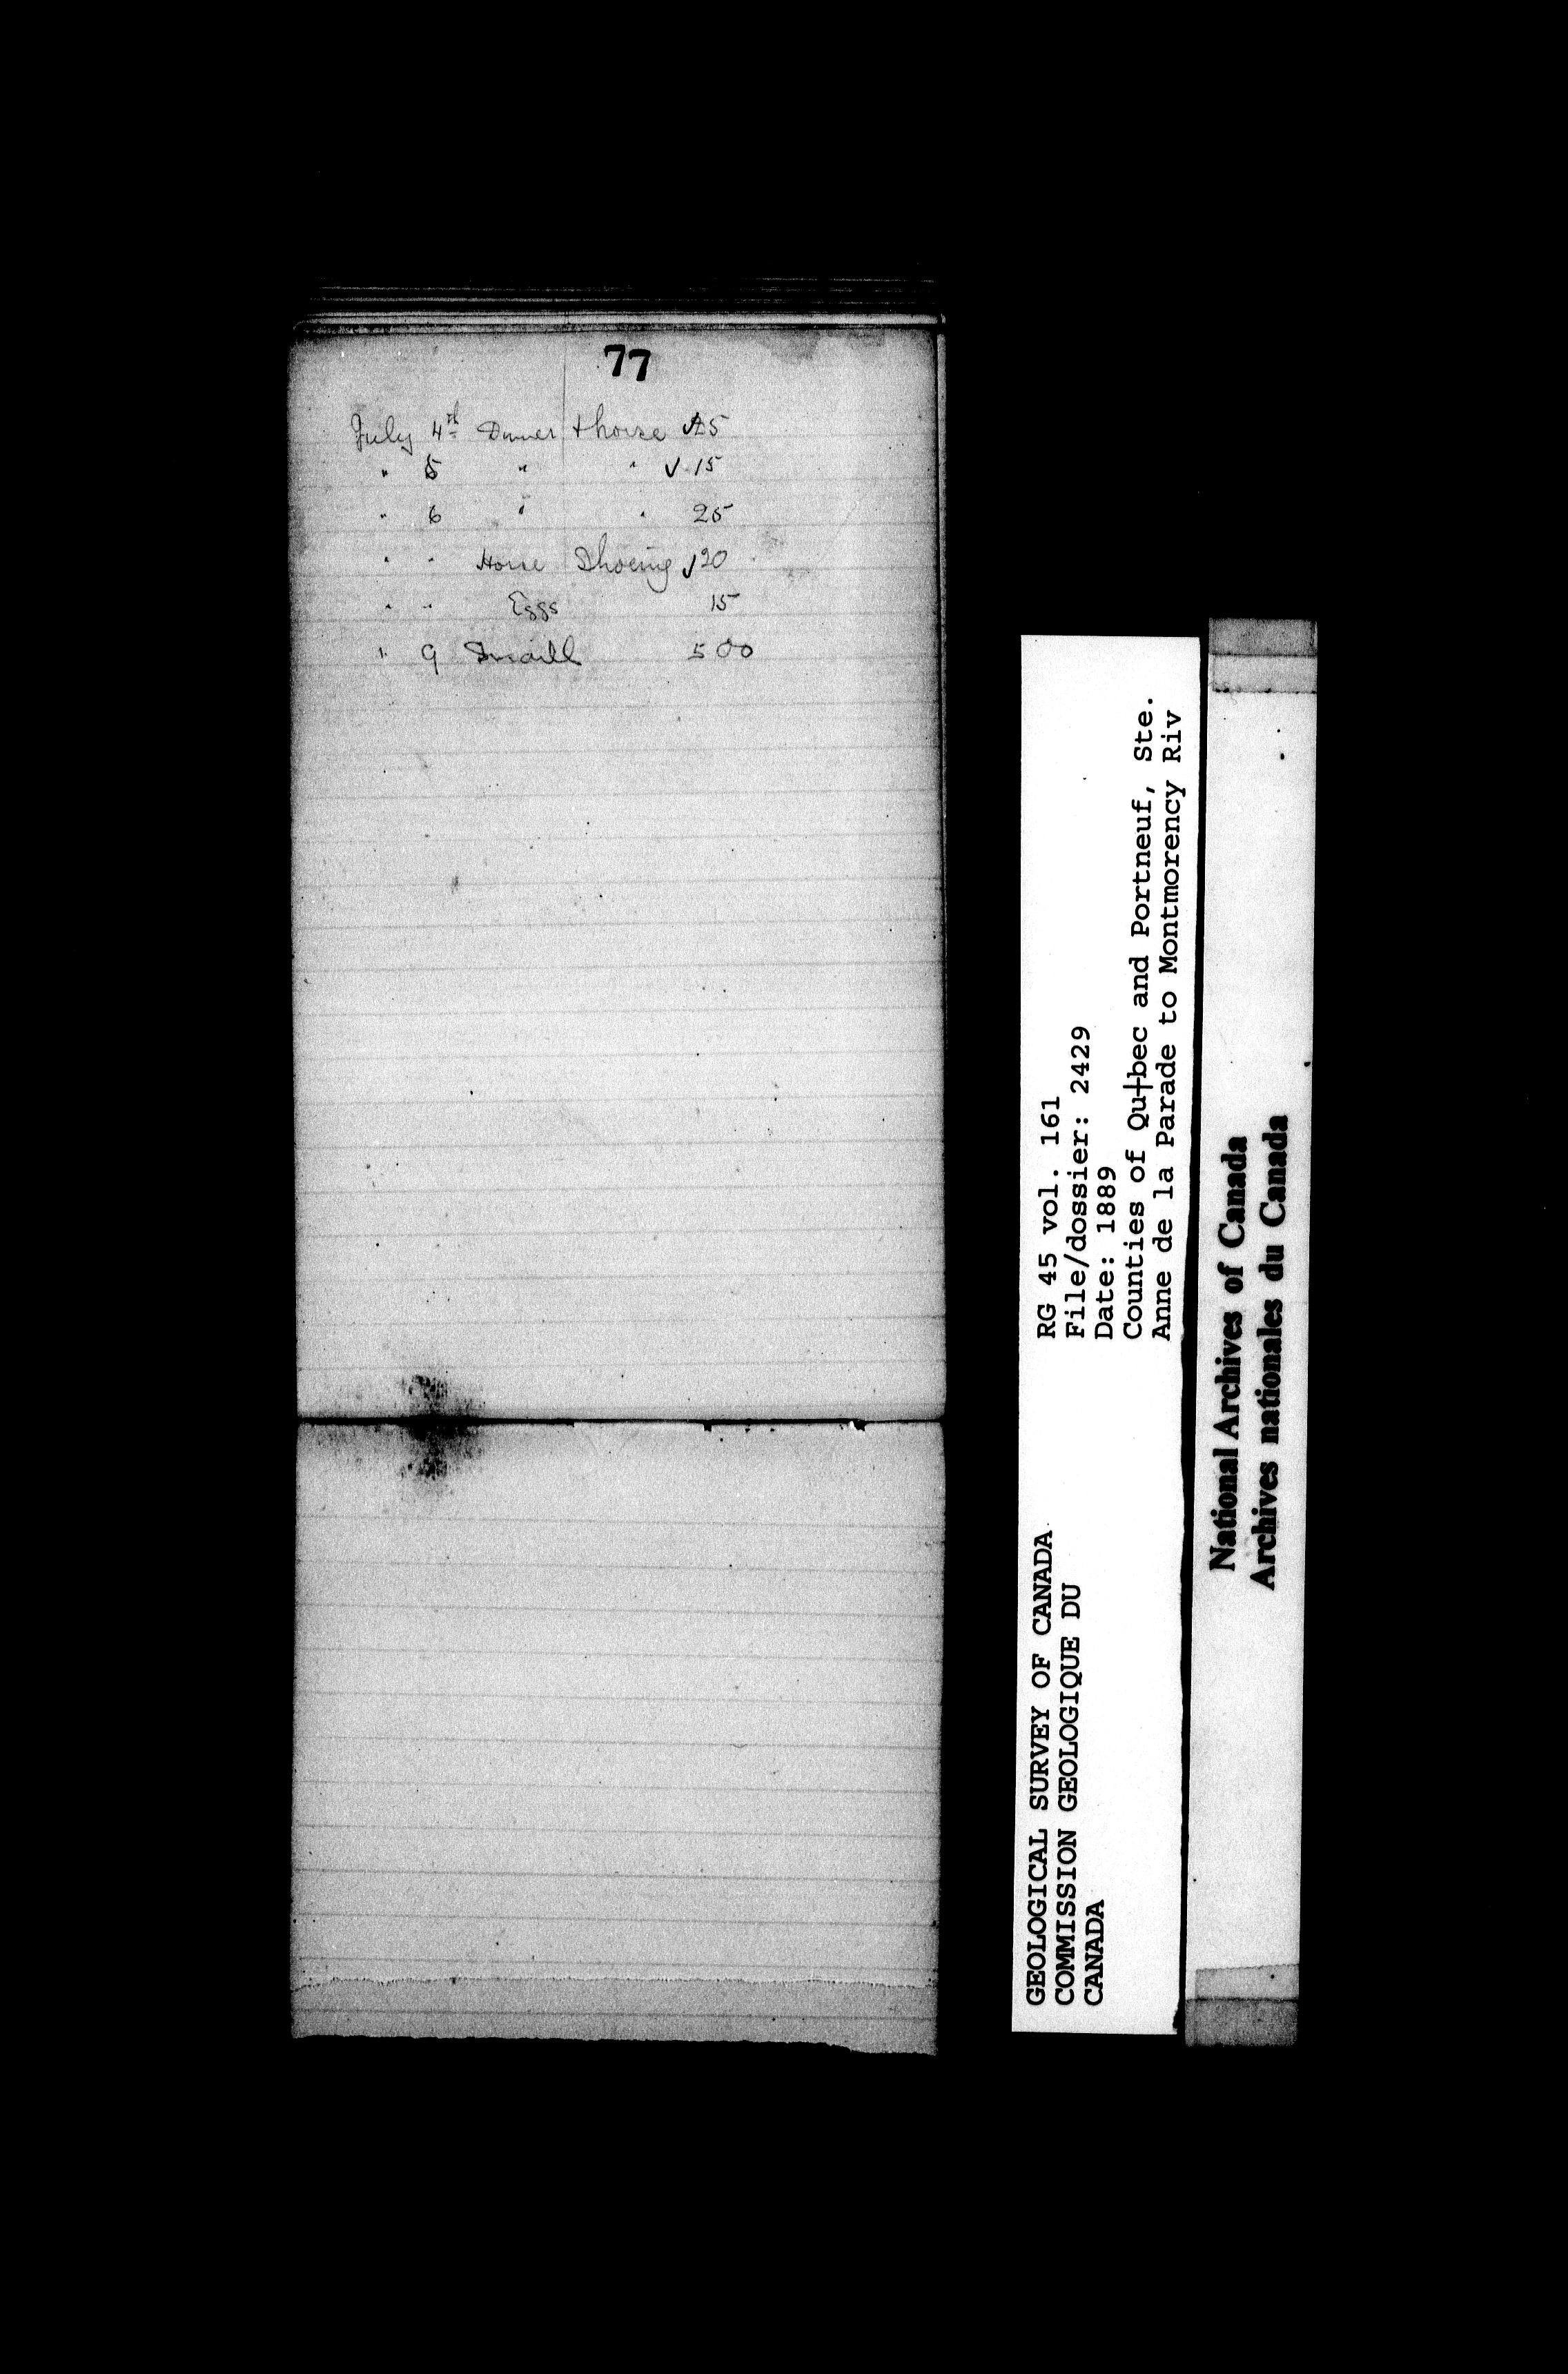 77
July 4th Dinner & horse √25
" 5 " " √ 15
" 6 " " 25
" " Horse Shoeing √20
" " Eggs 15
" 9 Smaill 5 00
RG 45 vol. 161
File/dossier: 2429
Date: 1889
Counties of Qu┼bec and Portneuf, Ste.
Anne de la Parade to Montmorency Riv
GEOLOGICAL SURVEY OF CANADA
COMMISSION GEOLOGIQUE DU
CANADA
National Archives of Canada
Archives nationales du Canada